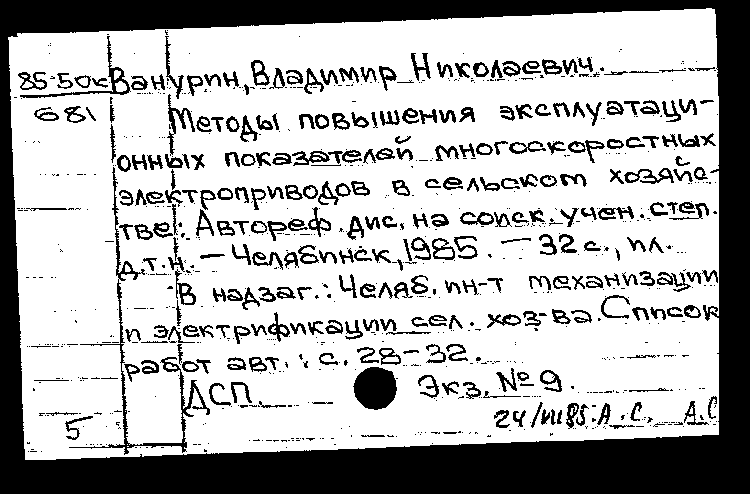 85-50к Ванурин, Владимир Николаевич.
681 Методы повышения эксплуатаци-
онных показателей многоскоростных
электроприводов в сельском хозяйс-
тве: Автореф. дис. на соиск. учен. степ.
д.т.н. — Челябинск, 1985. — 32 с., ил.
В надзаг.: Челяб. ин-т механизации
и электрификации сел. хоз-ва. Список
работ авт.: с. 28-32.
ДСП. Экз. №9.
5 24/VII85. А.С. А.С